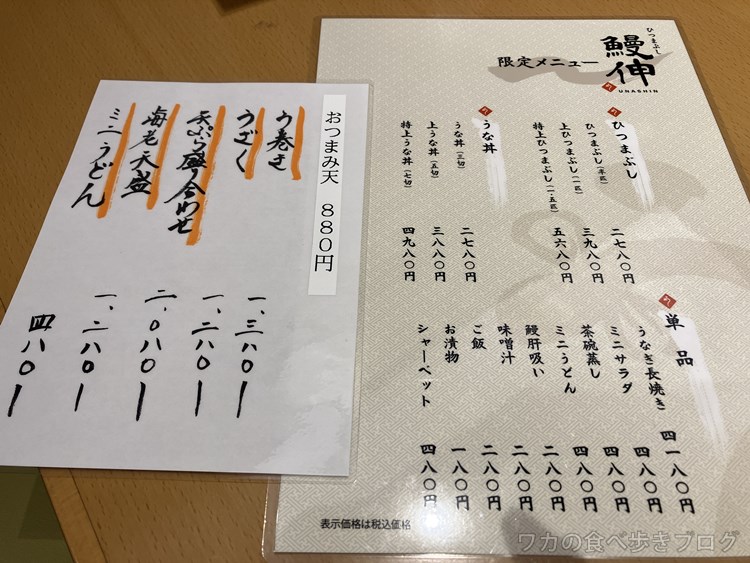 ひつまぶし
鰻伸
UNASHIN
限定メニュー
ひつまぶし
ひつまぶし(半匹) 二七八〇円
上ひつまぶし(一匹) 三九八〇円
特上ひつまぶし(一・五匹) 五六八〇円
うな丼
うな丼(三切) 二七八〇円
上うな丼(五切) 三八八〇円
特上うな丼(七切) 四九八〇円
単品
うなぎ長焼き 四一八〇円
ミニサラダ 四八〇円
茶碗蒸し 四八〇円
ミニうどん 四八〇円
鰻肝吸い 二八〇円
味噌汁 二八〇円
ご飯 二八〇円
お漬物 一八〇円
シャーベット 四八〇円
表示価格は税込価格
おつまみ天 880円
う巻き 一、三八〇ー
うざく 一、二八〇ー
天ぷら盛り合わせ 二、〇八〇ー
海老天盛 一、二八〇ー
ミニうどん 四八〇ー
ワカの食べ歩きブログ